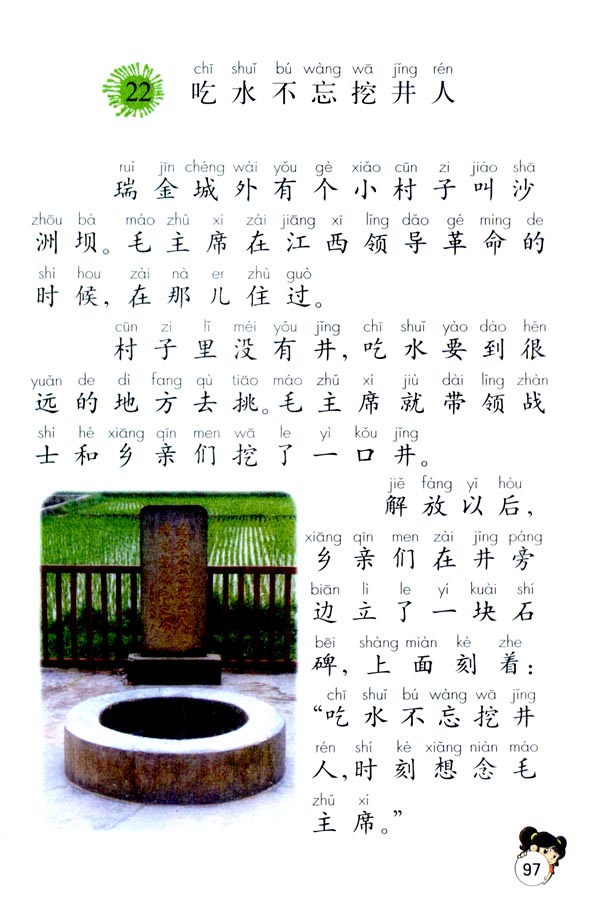 chī shuǐ bú wàng wā jǐng rén
22 吃水不忘挖井人
ruì jīn chéng wài yǒu gè xiǎo cūn zi jiào shā
瑞金城外有个小村子叫沙
zhōu bà máo zhǔ xi zài jiāng xī lǐng dǎo gé mìng de
洲坝。毛主席在江西领导革命的
shí hou zài nà er zhù guò
时候,在那儿住过。
cūn zi lǐ méi yǒu jǐng chī shuǐ yào dào hěn
村子里没有井,吃水要到很
yuǎn de dì fang qù tiāo máo zhǔ xí jiù dài lǐng zhàn
远的地方去挑。毛主席就带领战
shì hé xiāng qīn men wā le yì kǒu jǐng
士和乡亲们挖了一口井。
jiě fàng yǐ hòu
解放以后,
xiāng qīn men zài jǐng páng
乡亲们在井旁
biān lì le yí kuài shí
边立了一块石
bēi shàng miàn kè zhe
碑,上面刻着:
chī shuǐ bú wàng wā jǐng
“吃水不忘挖井
rén shí kè xiǎng niàn máo
人,时刻想念毛
zhǔ xí
主席。”
97